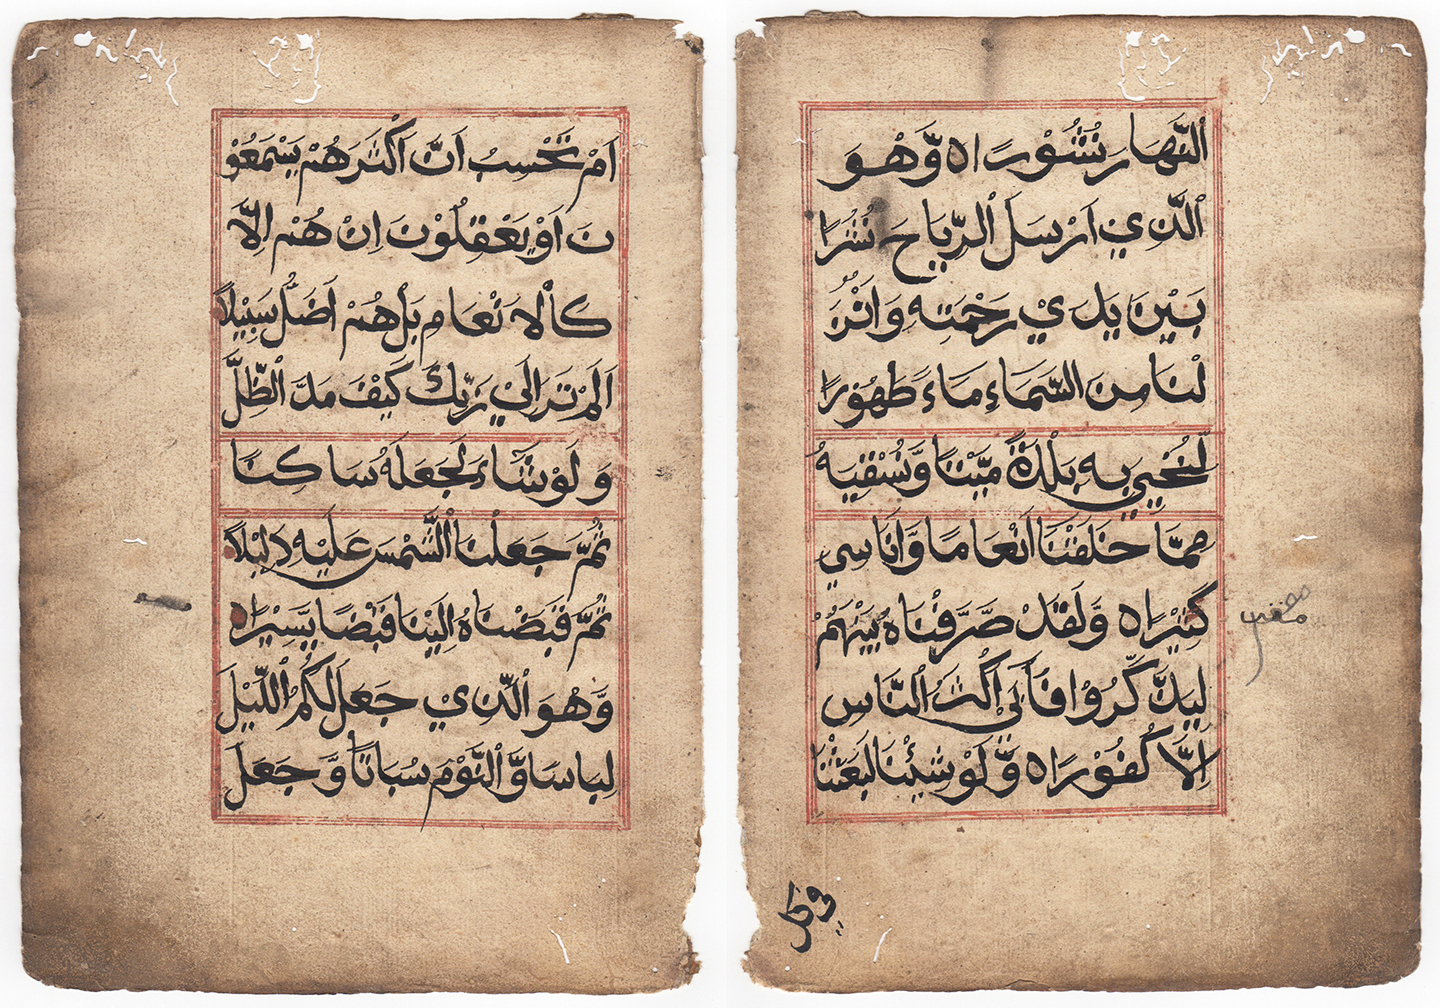 اَمْ تَحْسِبُ اَنَّ اَكْثَرَهُمْ يَسْمَعُوْ
نَ اَوْ يَعْقِلُوْنَ اِنْ هُمْ اِلَّا
كَاْلاَنْعَامِ بَلْ هُمْ اَضَلُّ سَبِيْلًا
اَلَمْ تَرَ اِلَيْ رَبِّكَ كَيْفَ مَدَّ الظِّلَّ
وَلَوْ شَاءَ لَجَعَلَهُ سَاكِنًا
ثُمَّ جَعَلْنَا الشَّمْسَ عَلَيْهِ دَلِيْلًا
ثُمَّ قَبَضْنَاهُ اِلَيْنَا قَبْضًا يَّسِيْرًا
وَّهُوَ الَّذِيْ جَعَلَ لَكُمُ اللَّيْلَ
لِبَاسًا وَّالنَّوْمَ سُبَاتًا وَّجَعَلَ
النَّهَارَ نُشُوْرًا ه وَّهُوَ
الَّذِيْ اَرْسَلَ الرِّيَاحَ نُشُرًا
بَيْنَ يَدَيْ رَحْمَتِهِ وَاَنْزَ
لْنَا مِنَ السَّمَاءِ مَاءً طَهُوْرًا
لِنُحْيِيَ بِهِ بَلْدَةً مَيْتًا وَّنُسْقِيَهُ
مِمَّا خَلَقْنَا اَنْعَامًا وَّاَنَاسِي
كَثِيْرًا ه وَلَقَدْ صَرَّفْنَاهُ بَيْنَهُمْ
لِيَذَّكَّرُوْا فَاَبَي اَكْثَرُ النَّاسِ
اِلَّا كُفُوْرًا ه وَّلَوْ شِئْنَا لَبَعَثْنَا
في كل